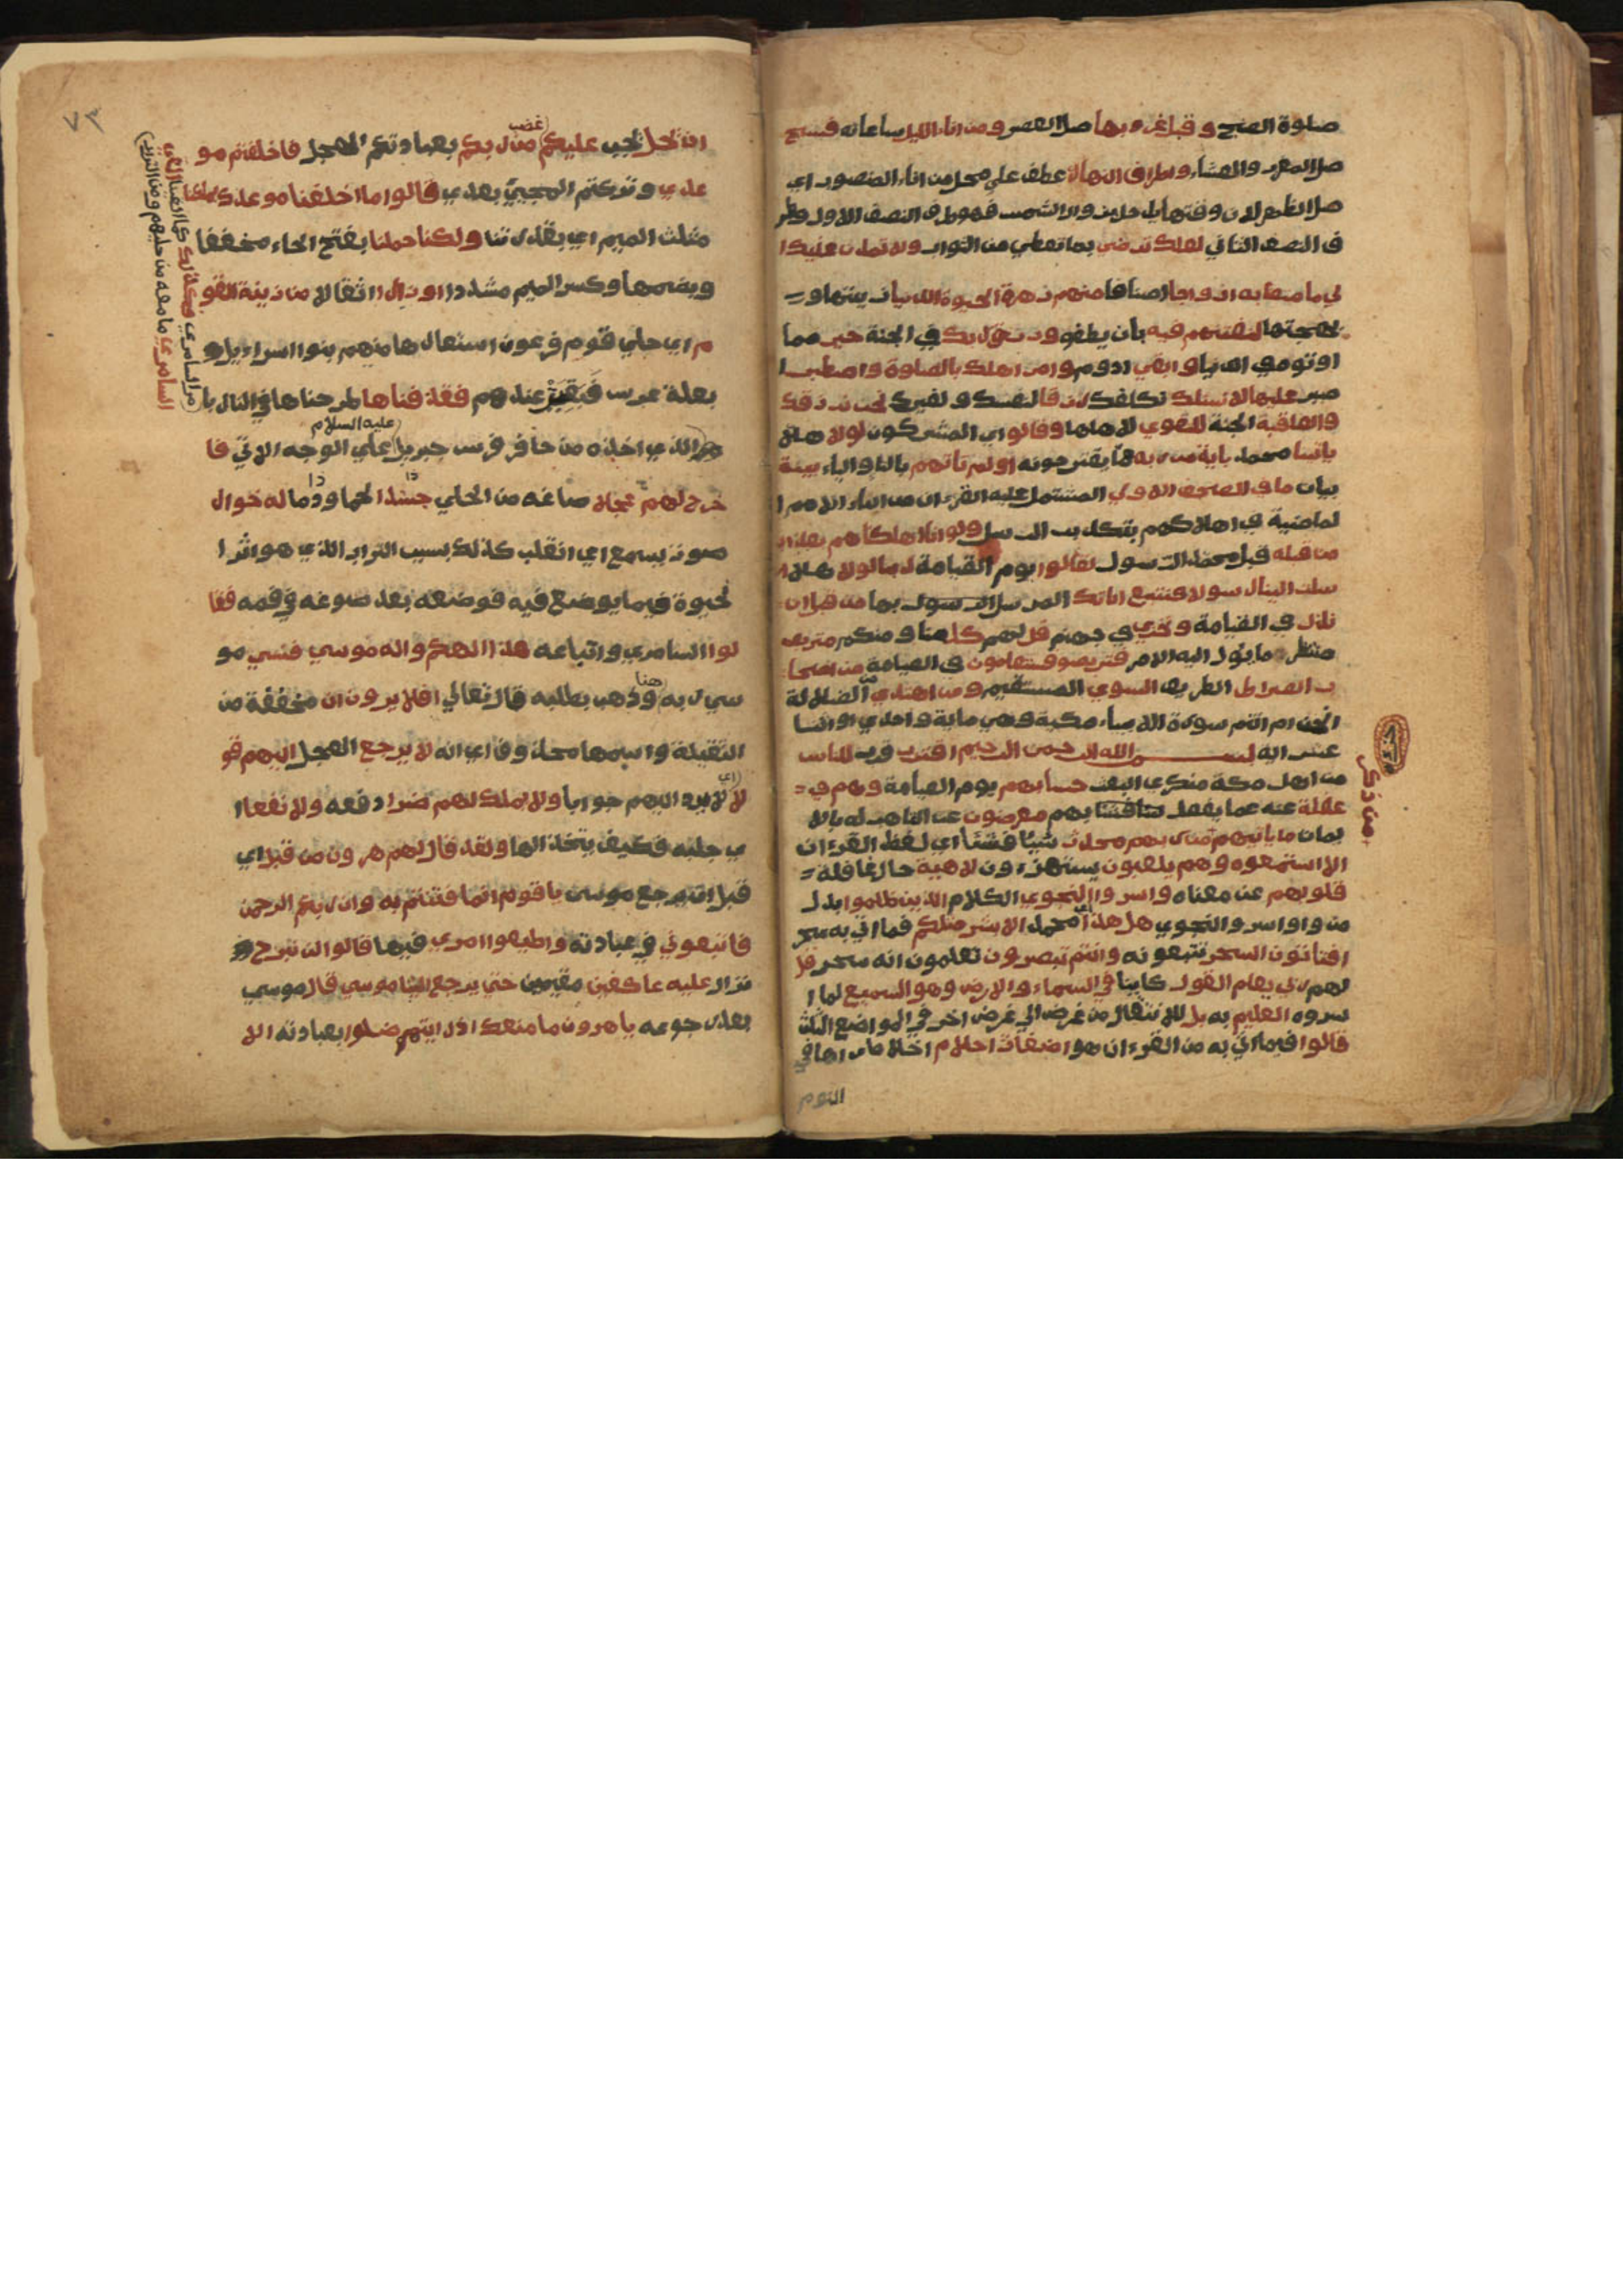 صلوة الصبح و قبل غروبها صلاالعصر ومن اناء الليل ساعاته فسبح
صلاالمغرب والعشاء واطراف النهار عطف علي محل من اناء المنصوب اي
صلاالظهر لان وقتها يدخل بزوال الشمس فهو طرف النصف الاول وطر
ف النصف الثاني لعلك ترضي بما تعطي من الثواب ولا تمدن عينيك ا
لي ما متعنا به ازواجا اصنافا منهم زهرة الحيوة الدنيا زينتها و
بهجتها لنفتنهم فيه بان يطغوو ورزق ربك في الجنة خير مما
اوتوه في الدنيا وابقي ادوم وامر اهلك بالصلوة واصطبر ا
صبر عليها لانسئلك نكلفك رزقا لنفسك و لغيرك نحن نرزقك
والعاقبة الجنة للتقوي لاهلها وقالوا اي المشركون لولا هلا
ياتينا محمد باية من ربه مما يقترحونه اولم تاتهم بالتاوالياء بينة
بيان ما في الصحف الاولي المشتمل عليه القرءان من انباء الامم ا
لماضية و اهلاكهم بتكذيب الرسل ولو انا اهلكناهم بعذاب
من قبله قبل محمد الرسول لقالوا يوم القيامة ربنا لولا هلا ا
سلت الينا رسولا فنتبع اياتك المرسل الرسول بها من قبل ان
نذل في القيامة ونخزي في جهنم قل لهم كل منا ومنكم متربص
منتظر ما يؤل اليه الامر فتربصو فستعلمون في القيامة من اصحا
ب الصراط الطريق السوي المستقيم ومن اهتدي من الضلالة
انحن ام انتم سورة الانبياء مكية وهي ماية واحدي اواثنتا
عشر اية بسم الله الرحمن الرحيم اقترب قرب للناس
من اهل مكة منكري البعث حسابهم يوم القيامة وهم في
غفلة عنه معرضون عن التاهب له بالا
يمان ما ياتيهم من ذكر من ربهم محدث شيئا فشيئا اي لفظ القرءان
الا استمعوه وهم يلعبون يستهزءون لاهية حال غافلة
قلوبهم عن معناه واسروا النجوي الكلام الذين ظلموا بدل
من واو اسروالنجوي هل هذا اي محمد الا بشر مثلكم فما اتي به سحر
افتاتون السحر تتبعونه وانتم تبصرون تعلمون انه سحر قل
لهم ربي يعلم القول كاينا في السماء والارض وهو السميع لما ا
سروه العليم به بل للانتقال من غرض الي غرض اخر في المواضع الثلث
قالوا فيما اتي به من القرءان هو اضغاث احلام اخلاط راها في
النوم
٧٣
ان يحل يجب عليكم غضب من ربكم بعبادتكم العجل فاخلفتم مو
عدي وتركتم المجيئ بعدي قالوا ما اخلفنا موعدك بملكنا
مثلث الميم اي بقدرتنا ولكنا حملنا بفتح الحاء مخففا
وبضمها وكسر الميم مشددا اوزارا اثقالا من زينة القو
م اي حلي قوم فرعون استعارها منهم بنوا اسراءيل
بعلة عرس فبقيت عندهم فقذفناها طرحناها في النار با
مر السامري فكذلك كما القينا القي السامري ما معه من حليهم ومن التراب
الذي اخذه من حافر فرس جبريل عليه السلام علي الوجه الاتي فا
خرج لهم عجلا صاغه من الحلي جسدا لحما ودما له خوار
صوت يسمع اي انقلب كذلك بسبب التراب الذي هو اثر ا
لحيوة فيما يوضع فيه فوضعه بعد صوغه في فمه فقا
لوا السامري واتباعه هذا الهكم واله موسي فنسي مو
سي ربه هنا وذهب يطلبه قال تعالي افلا يرون ان مخففة من
الثقيلة واسمها محذوف اي انه لا يرجع العجل اليهم قو
لا اي لا يرد اليهم جوابا ولا يملك لهم ضرا دفعه ولا نفعا ا
ي جلبه فكيف يتخذ الها ولقد قال لهم هرون من قبل اي
قبل ان يرجع موسي يا قوم انما فتنتم به وان ربكم الرحمن
فاتبعوني في عبادته واطيعوا امري فيها قالوا لن نبرح
نزال عليه عاكفين مقيمين حتي يرجع الينا موسي قال موسي
بعد رجوعه ياهرون ما منعك اذ رايتهم ضلوا بعبادته الا